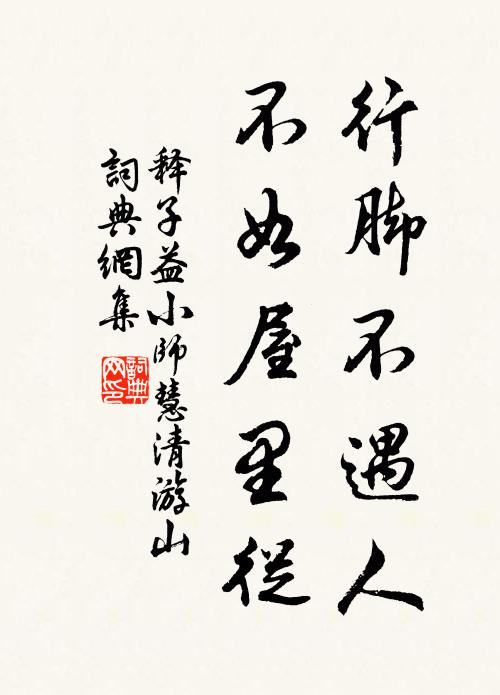 行脚不遇人
不如屋里從
释子益小師慧清游山
詞典網集
詞典
网印